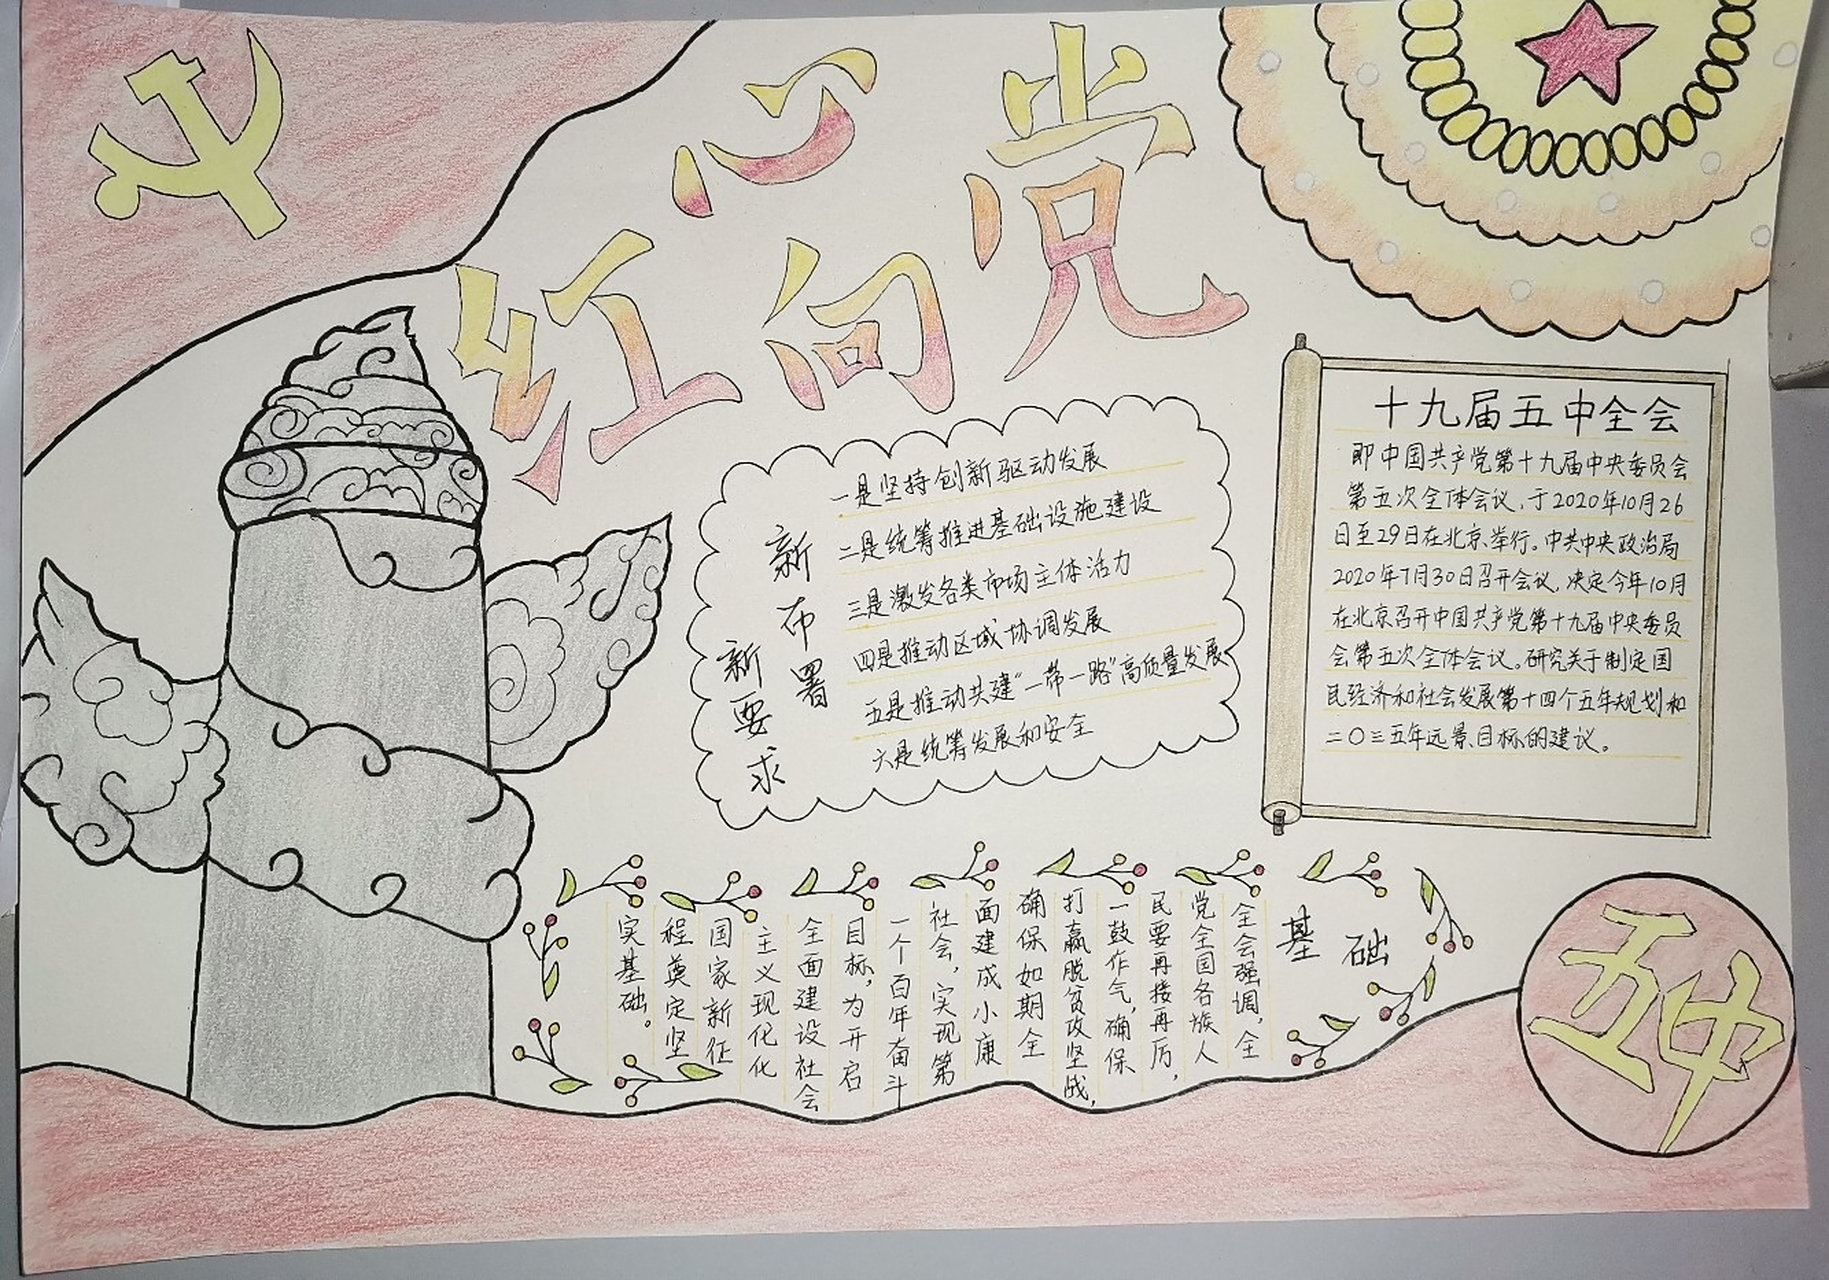 红心向党
新布署
新要求
一是坚持创新驱动发展
二是统筹推进基础设施建设
三是激发各类市场主体活力
四是推动区域协调发展
五是推动共建“一带一路”高质量发展
六是统筹发展和安全
十九届五中全会
即中国共产党第十九届中央委员会
第五次全体会议，于2020年10月26
日至29日在北京举行。中共中央政治局
2020年7月30日召开会议，决定今年10月
在北京召开中国共产党第十九届中央委员
会第五次全体会议。研究关于制定国
民经济和社会发展第十四个五年规划和
二〇三五年远景目标的建议。
基础
全会强调，全
党全国各族人
民要再接再厉，
一鼓作气，确保
打赢脱贫攻坚战，
确保如期全
面建成小康
社会，实现第
一个百年奋斗
目标，为开启
全面建设社会
主义现化化
国家新征
程奠定坚
实基础。
五中